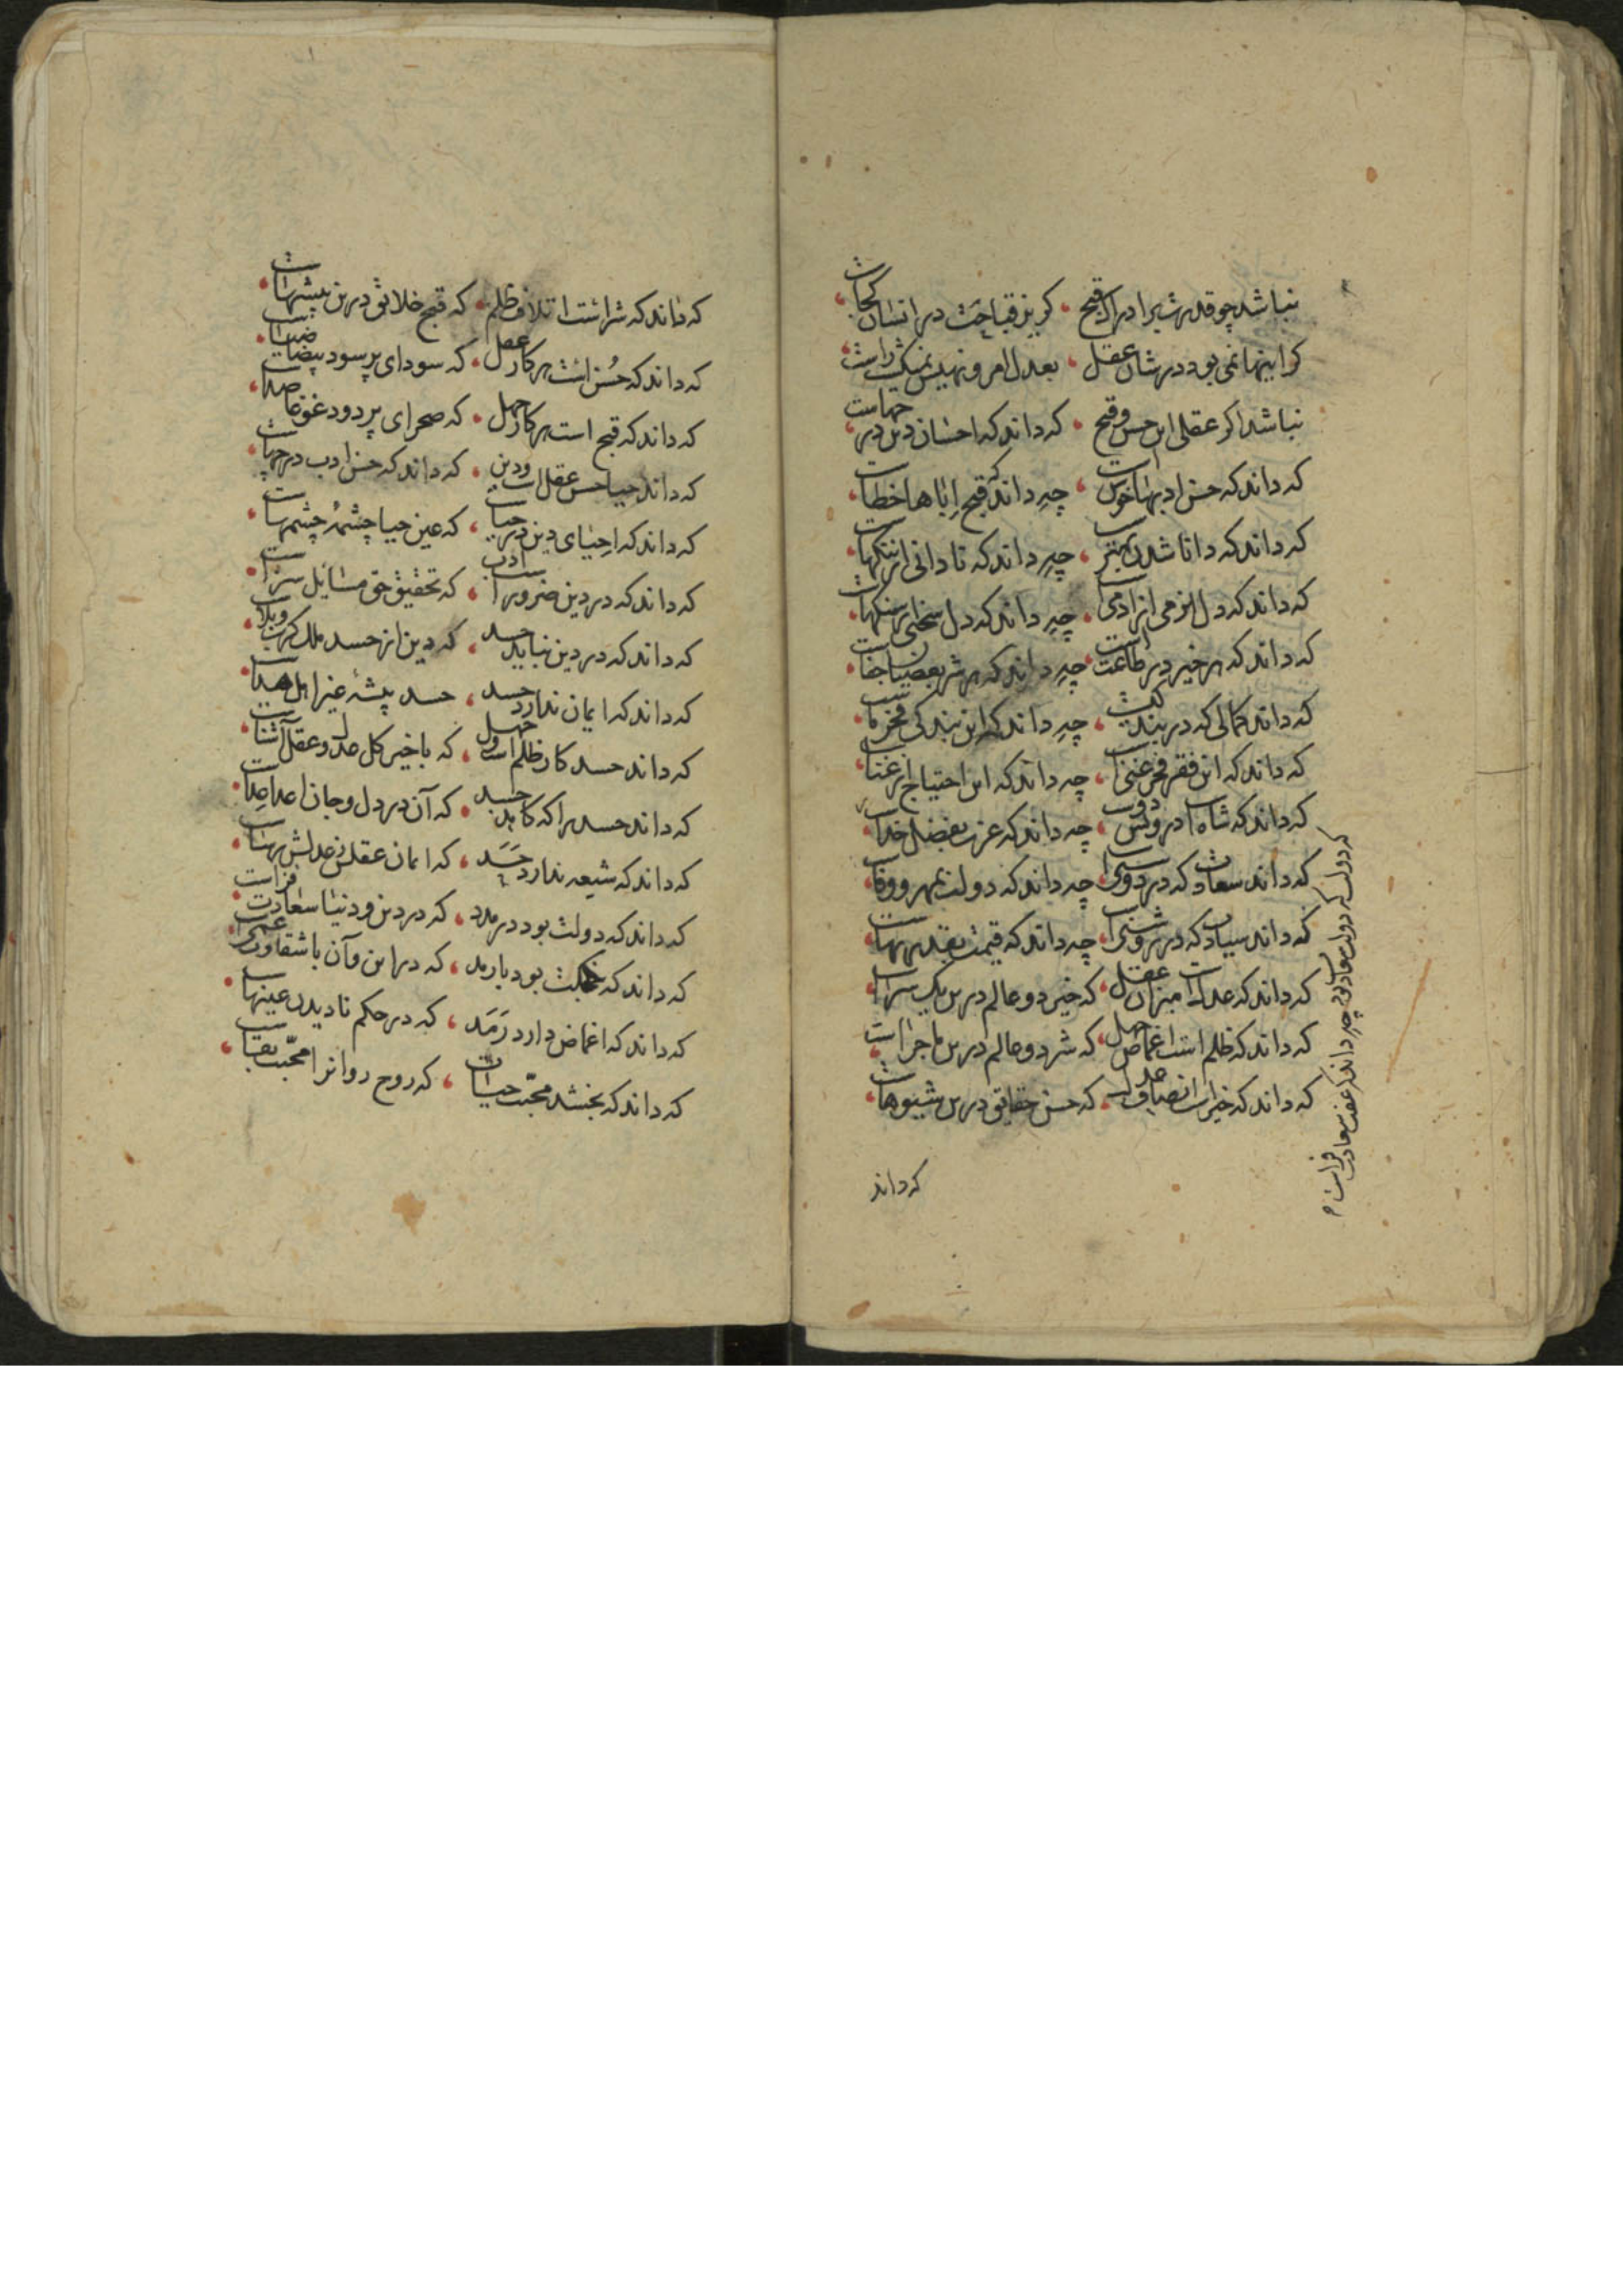 نباشد چو قدرت بر ادراک قبح ، گریز قباحت در انسان کجاست
گر اینها نمی بود در شان عقل ، بعدل امر و نهیش نمیگشت راست
نباشد اگر عقلی این حسن و قبح ، که داند که احسان دین در حماست
که داند که حسن ادبها خوش است ، چه داند که قبح اباها خطاست
که داند که دانا شدن بهتر است ، چه داند که نادانی از ننگهاست
که داند که دل نرمی از آدمی است ، چه داند که دل سختی از سنگهاست
که داند که هر خیر در طاعتست ، چه داند که هر شر بعصیان جفاست
که داند کمالی که در بندگیست ، چه داند که این بندگی فخر ماست
که داند که این فقر فخر غنی است ، چه داند که این احتیاج از غناست
که داند که شاه است درویش دوست ، چه داند که عزت بفضل خداست
که داند سعادت که در دوستی است ، چه داند که دولت بمهر و وفاست
که داند سیادت که در روشنی است ، چه داند که قیمت بقدر بهاست
که داند که عدل است میزان عقل ، که خیر دو عالم درین یک سراست
که داند که ظلم است اغماض جهل ، که شر دو عالم درین ماجراست
که داند که خیر است انصاف عدل ، که حسن حقایق درین شیوهاست
که داند
که داند که شر است اتلاف ظلم ، که قبح خلایق درین پیشهاست
که داند که حُسن است هر کار عقل ، که سودای پر سود بیضاست
که داند که قبح است هر کار جهل ، که صحرای پر دود غوغا
که داند حیا حسن عقل است و دین ، که داند که حسن ادب در حیاست
که داند که احیای دین در حیاست ، که عین حیا چشمهٔ چشمهاست
که داند که در دین ضرور است ادب ، که تحقیق حق مسایل سزاست
که داند که در دین نباید حسد ، که دین از حسد ملک کرب و بلاست
که داند که ایمان ندارد حسد ، حسد پیشهٔ غیر اهل هداست
که داند حسد کار ظلم است و جهل ، که با خیر کل عدل و عقل آشناست
که داند حسد را که کاید حسد ، که آن در دل و جان اعدا
که داند که شیعه ندارد حَسَد ، که ایمان عقلش
که داند که دولت بود در مدد ، که در دین و دنیا سعادت فزاست
که داند که نکبت بود بارمد ، که در این و آن با شقاوت عمی است
که داند که اغماض دارد رَمَد ، که در حکم نادیدن عینهاست
که داند که بخشد محبّت حیات ، که روح روانرا محبّت بقاست